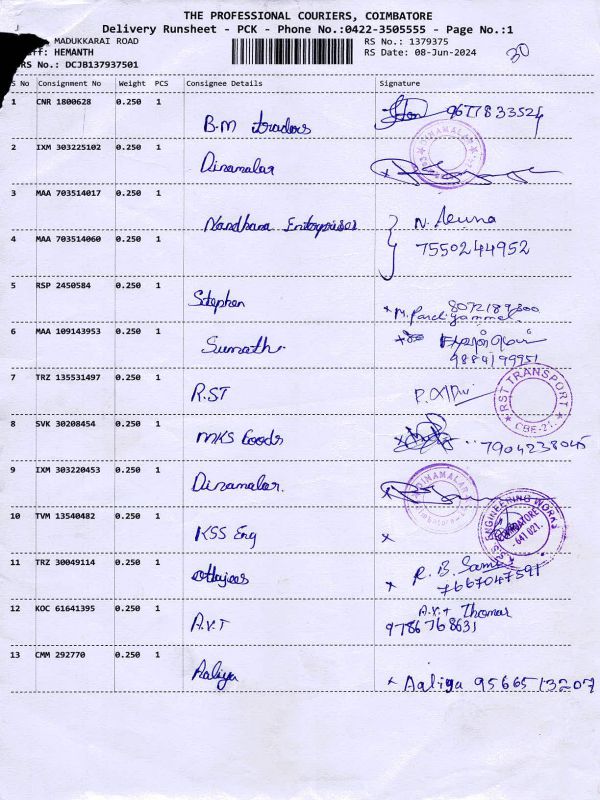 THE PROFESSIONAL COURIERS, COIMBATORE
Delivery Runsheet - PCK - Phone No.:0422-3505555 - Page No.:1
MADUKKARAI ROAD
RS No.: 1379375
30
ff: HEMANTH
RS Date: 08-Jun-2024
RS No.: DCJB137937501
S No Consignment No Weight PCS Consignee Details Signature
1 CNR 1800628 0.250 1 B.M traders 9677833524
2 IXM 303225102 0.250 1 Dinamalar
DINAMALAR
3 MAA 703514017 0.250 1 Nandhana Enterprises N.
4 MAA 703514060 0.250 1 7550244952
5 RSP 2450584 0.250 1 Stephen x M. Pandiyammal 8072189300
6 MAA 109143953 0.250 1 Sumathi
9884199951
7 TRZ 135531497 0.250 1 R.ST
RST TRANSPORT
CBE-21.
8 SVK 30208454 0.250 1 MKS Goods x 7904238045
9 IXM 303220453 0.250 1 Dinamalar.
DINAMALAR
10 TVM 13540482 0.250 1 KSS Eng x
ENGINEERING WORKS
COIMBATORE
- 641 021.
11 TRZ 30049114 0.250 1 x R. B. Sami
7667047591
12 KOC 61641395 0.250 1 A.V.T A.V.T Thomar
9786768631
13 CMM 292770 0.250 1 Aaliya x Aaliya 9566513207